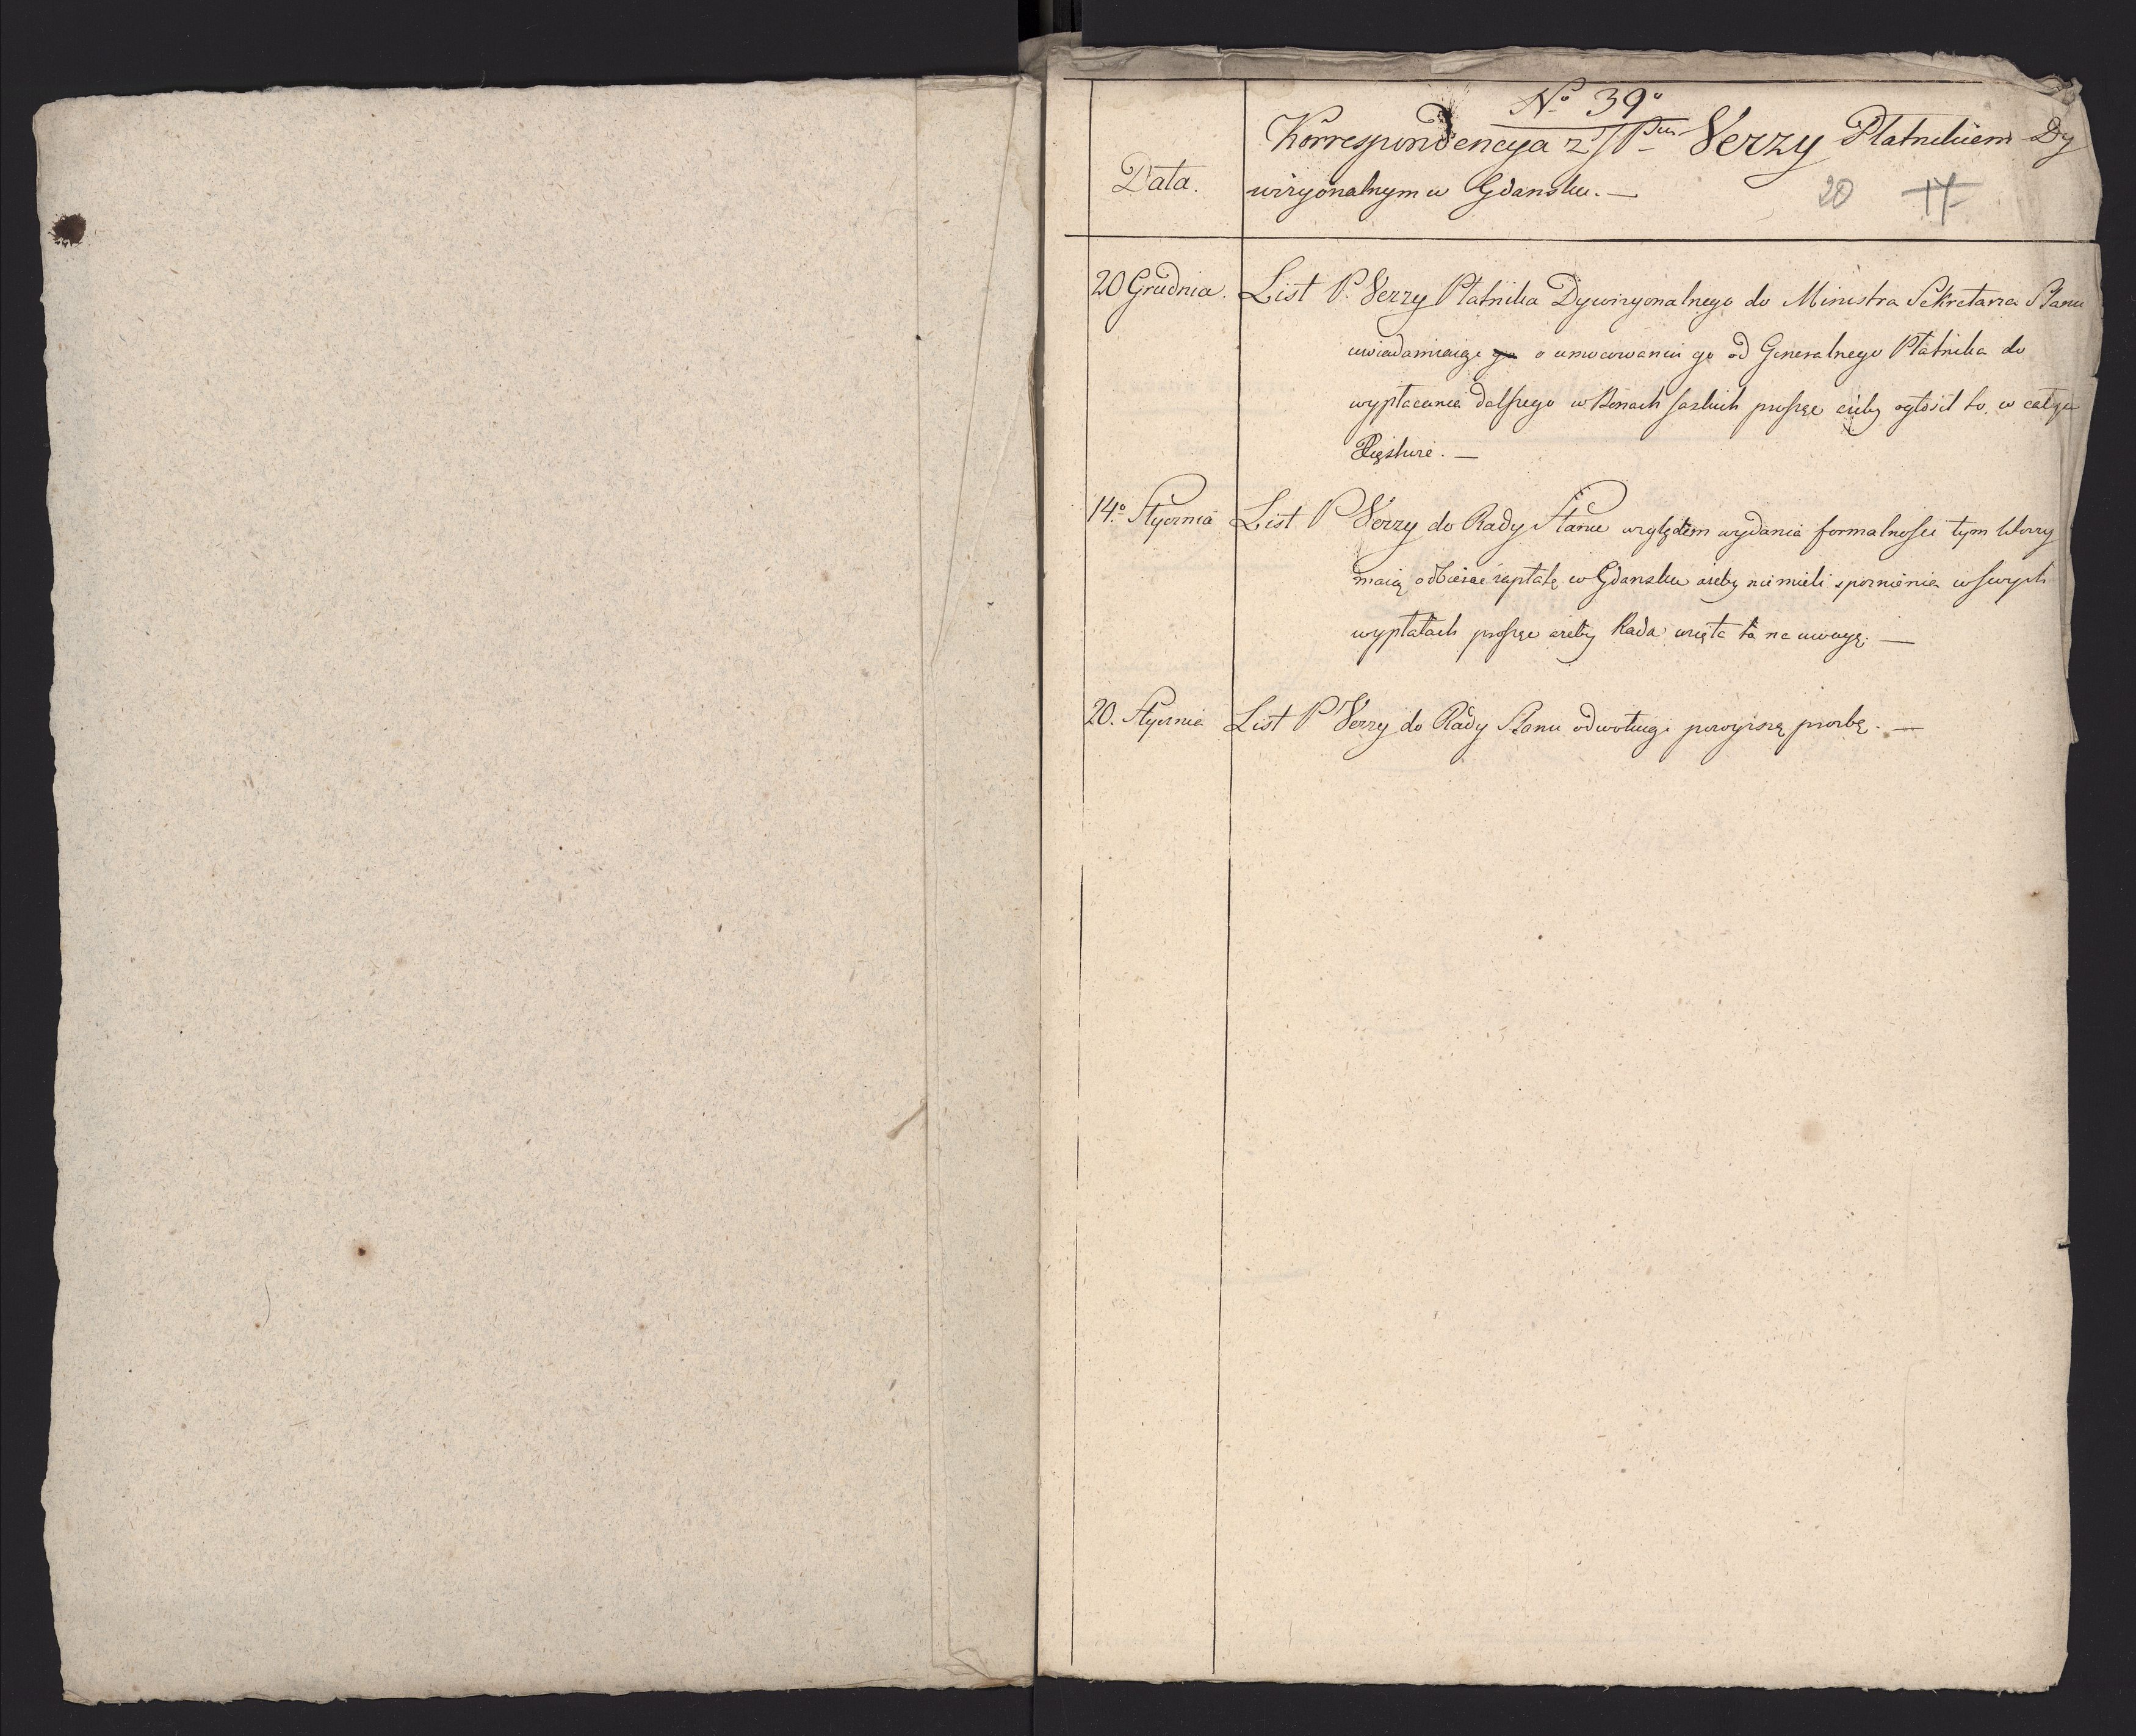 No 39o
Korrespondencya z JPem Verzy Płatnikiem Dy
Data.
wizyonalnym w Gdansku. —
20 17
20 Grudnia. List P. Verzy Płatnika Dywizyonalnego do Ministra Sekretarza Stanu
uwiadamiaiąc go o umocowaniu go od Generalnego Płatnika do
wypłacania dalszego w Bonach saskich prosząc ażeby ogłosił to w całym
14o Stycznia List P Verzy do Rady Stanu względem wydania formalnosci tym ktorzy
maią odbierać zapłatę w Gdansku ażeby nie mieli spoznienia w swych
wypłatach prosząc ażeby Rada wzięła to na uwagę. —
20. Stycznia List P Verzy do Rady Stanu odwołuiąc powyższą prosbę. —